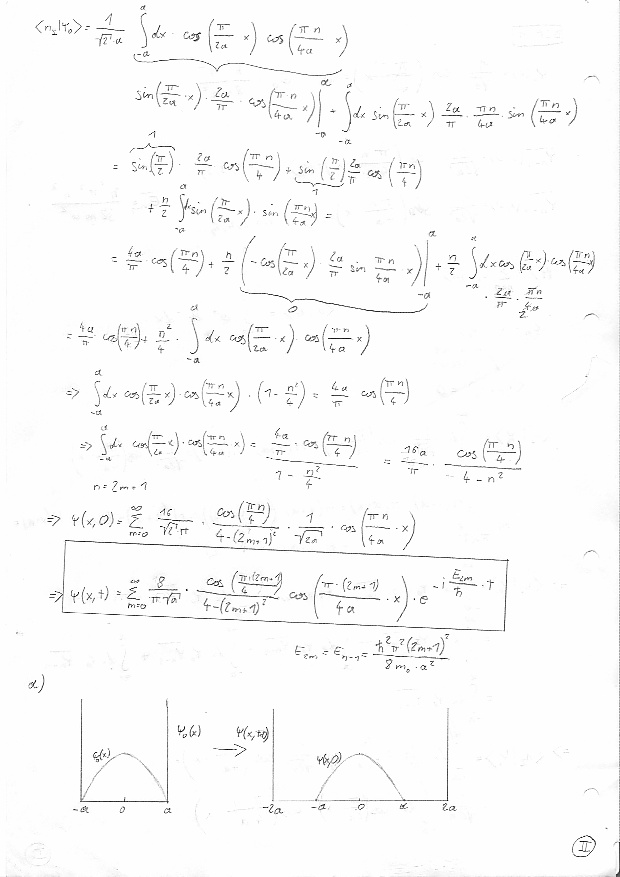 ⟨n_2|Ψ_0⟩ = 1/(√2·a) ∫_{-a}^{a} dx · cos(π/2a x) cos(πn/4a x)
sin(π/2a · x) · 2a/π · cos(πn/4a x) |_{-a}^{a} + ∫_{-a}^{a} dx sin(π/2a x) 2a/π · πn/4a · sin(πn/4a x)
1
= sin(π/2) · 2a/π cos(πn/4) + sin(π/2) 2a/π cos(πn/4)
1
+ n/2 ∫_{-a}^{a} dx sin(π/2a x) · sin(πn/4a x) =
= 4a/π · cos(πn/4) + n/2 (-cos(π/2a x) · 2a/π sin πn/4a x) |_{-a}^{a} + n/2 ∫_{-a}^{a} dx cos(π/2a x) · cos(πn/4a x)
0
· 2a/π · πn/4a
2
= 4a/π cos(πn/4) + n²/4 · ∫_{-a}^{a} dx cos(π/2a · x) · cos(πn/4a x)
=> ∫_{-a}^{a} dx cos(π/2a x) · cos(πn/4a x) · (1 - n²/4) = 4a/π cos(πn/4)
=> ∫_{-a}^{a} dx cos(π/2a x) · cos(πn/4a x) = (4a/π · cos(πn/4))/(1 - n²/4) = 16a/π · cos(πn/4)/(4 - n²)
n = 2m+1
=> Ψ(x,0) = Σ_{m=0}^{∞} 16/(√2 · π) · cos(πn/4)/(4-(2m+1)²) · 1/√2a · cos(πn/4a · x)
=> Ψ(x,t) = Σ_{m=0}^{∞} 8/(π√a) · cos(π·(2m+1)/4)/(4-(2m+1)²) cos(π·(2m+1)/4a · x) · e^{-i E_{2m}/ħ · t}
E_{2m} = E_{n-1} = ħ²π²(2m+1)²/(8m_0 · a²)
d)
φ_0(x) Ψ_0(x) → Ψ(x,t=0) Ψ(x,0)
-a 0 a -2a -a 0 a 2a
II